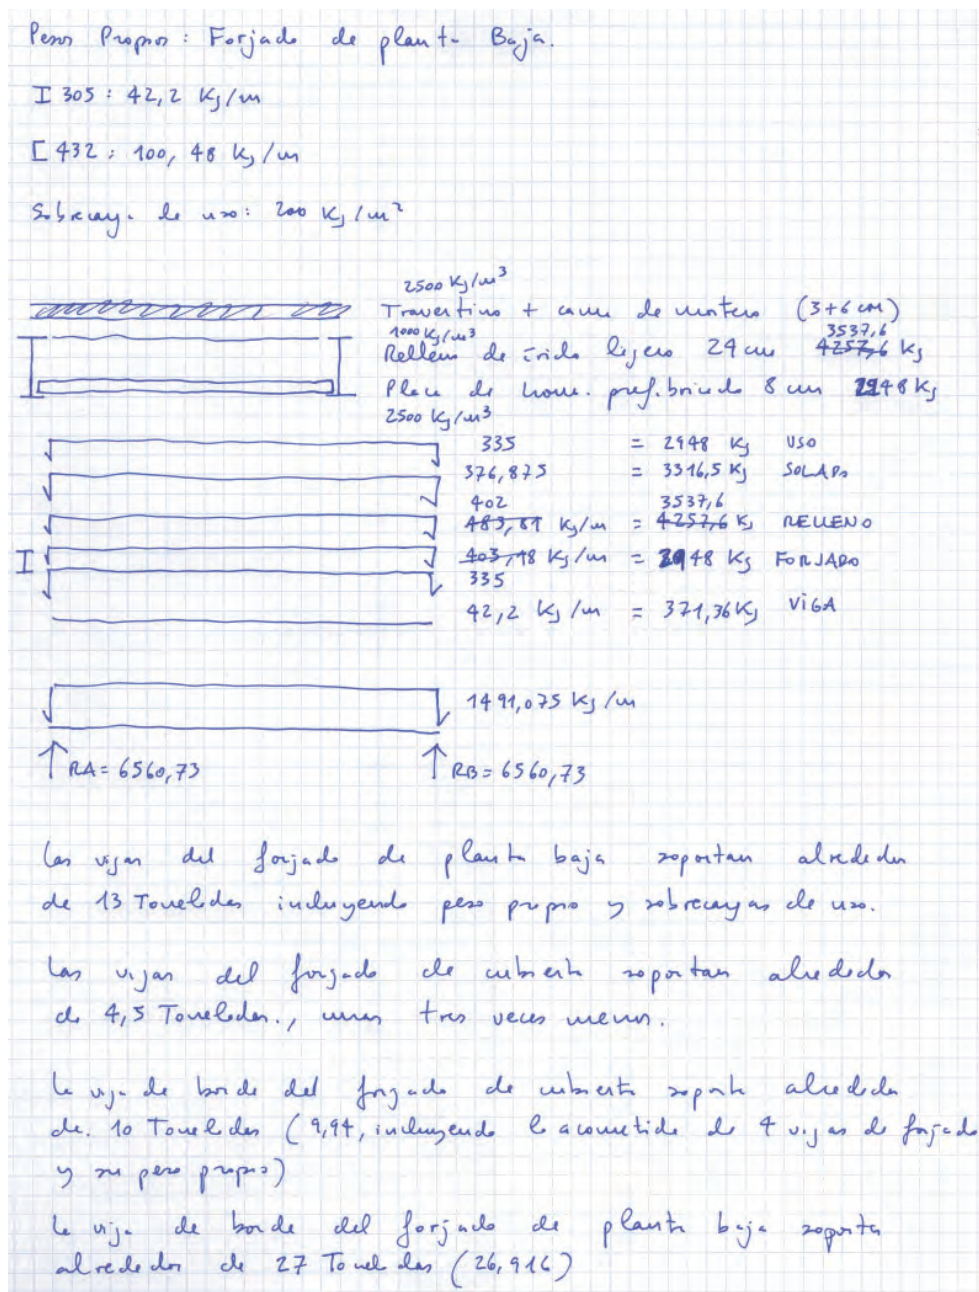 Pesos Propios: Forjado de planta Baja.
I 305: 42,2 Kg/m
[ 432: 100,48 Kg/m
Sobrecarga de uso: 200 Kg/m²
2500 Kg/m³
Travertino + cama de mortero (3+6 cm)
1000 Kg/m³ 3537,6
Relleno de árido ligero 24 cm 4257,6 Kg
Placa de horm. prefabricado 8 cm 2948 Kg
2500 Kg/m³
335 = 2948 Kg USO
376,875 = 3316,5 Kg SOLADO
402 3537,6
483,81 Kg/m = 4257,6 Kg RELLENO
I 403,48 Kg/m = 2948 Kg FORJADO
335
42,2 Kg/m = 371,36 Kg VIGA
1491,075 Kg/m
RA = 6560,73 RB = 6560,73
Las vigas del forjado de planta baja soportan alrededor
de 13 Toneladas incluyendo peso propio y sobrecargas de uso.
Las vigas del forjado de cubierta soportan alrededor
de 4,5 Toneladas., unas tres veces menos.
La viga de borde del forjado de cubierta soporta alrededor
de. 10 Toneladas (9,94, incluyendo la acometida de 4 vigas de forjado
y su peso propio)
La viga de borde del forjado de planta baja soporta
alrededor de 27 Toneladas (26,916)